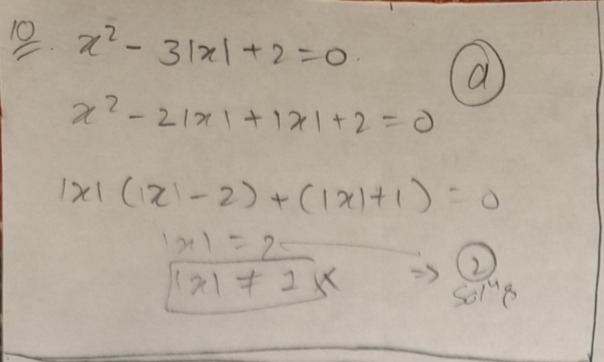 10. x² - 3|x| + 2 = 0.
a
x² - 2|x| + |x| + 2 = 0
|x| (|x| - 2) + (|x| + 1) = 0
|x| = 2
|x| ≠ 1 x ⇒ 2
solⁿs